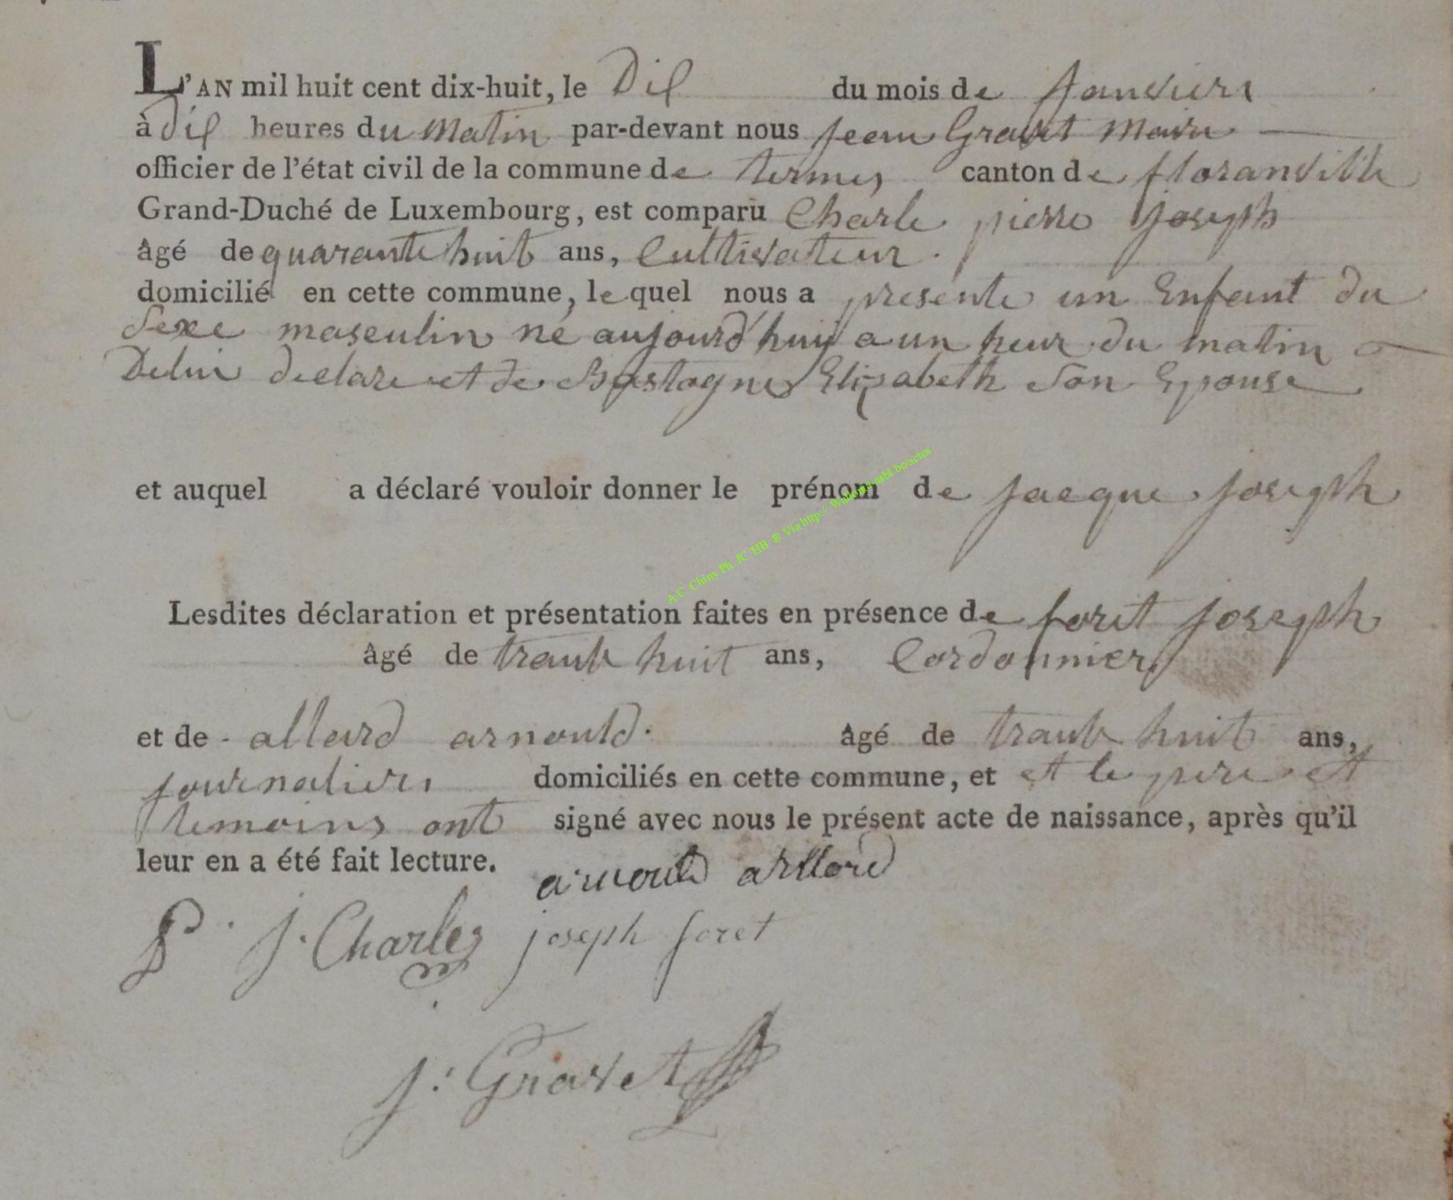 L'AN mil huit cent dix-huit, le Dix du mois de Janvier
à Dix heures du Matin par-devant nous jean Gravet Maire
officier de l'état civil de la commune de termes canton de floranville
Grand-Duché de Luxembourg, est comparu Charle pierre joseph
âgé de quarante huit ans, Cultivateur.
domicilié en cette commune, lequel nous a presente un Enfant du
Sexe masculin né aujourd'huy a un heur du matin
De lui declare et de Bastogne Elisabeth Son Epouse
et auquel a déclaré vouloir donner le prénom de jacque joseph
Lesdites déclaration et présentation faites en présence de foret joseph
âgé de trante huit ans, Cordonnier
et de allard arnould. âgé de trante huit ans,
journalier domiciliés en cette commune, et et le pere et
temoins ont signé avec nous le présent acte de naissance, après qu'il
leur en a été fait lecture. arnould allord
P. J. Charles joseph foret
j: Gravet